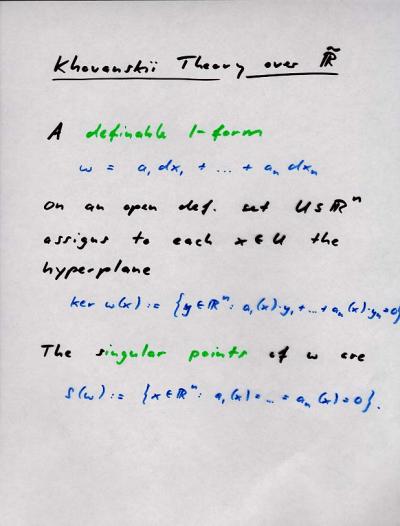 Khovanskii Theory over ℝ̃
A definable 1-form
ω = a₁dx₁ + ... + aₙdxₙ
on an open def. set U⊆ℝⁿ
assigns to each x∈U the
hyperplane
ker ω(x) := {y∈ℝⁿ: a₁(x)·y₁+...+aₙ(x)·yₙ=0}
The singular points of ω are
S(ω) := {x∈ℝⁿ: a₁(x)=...=aₙ(x)=0}.